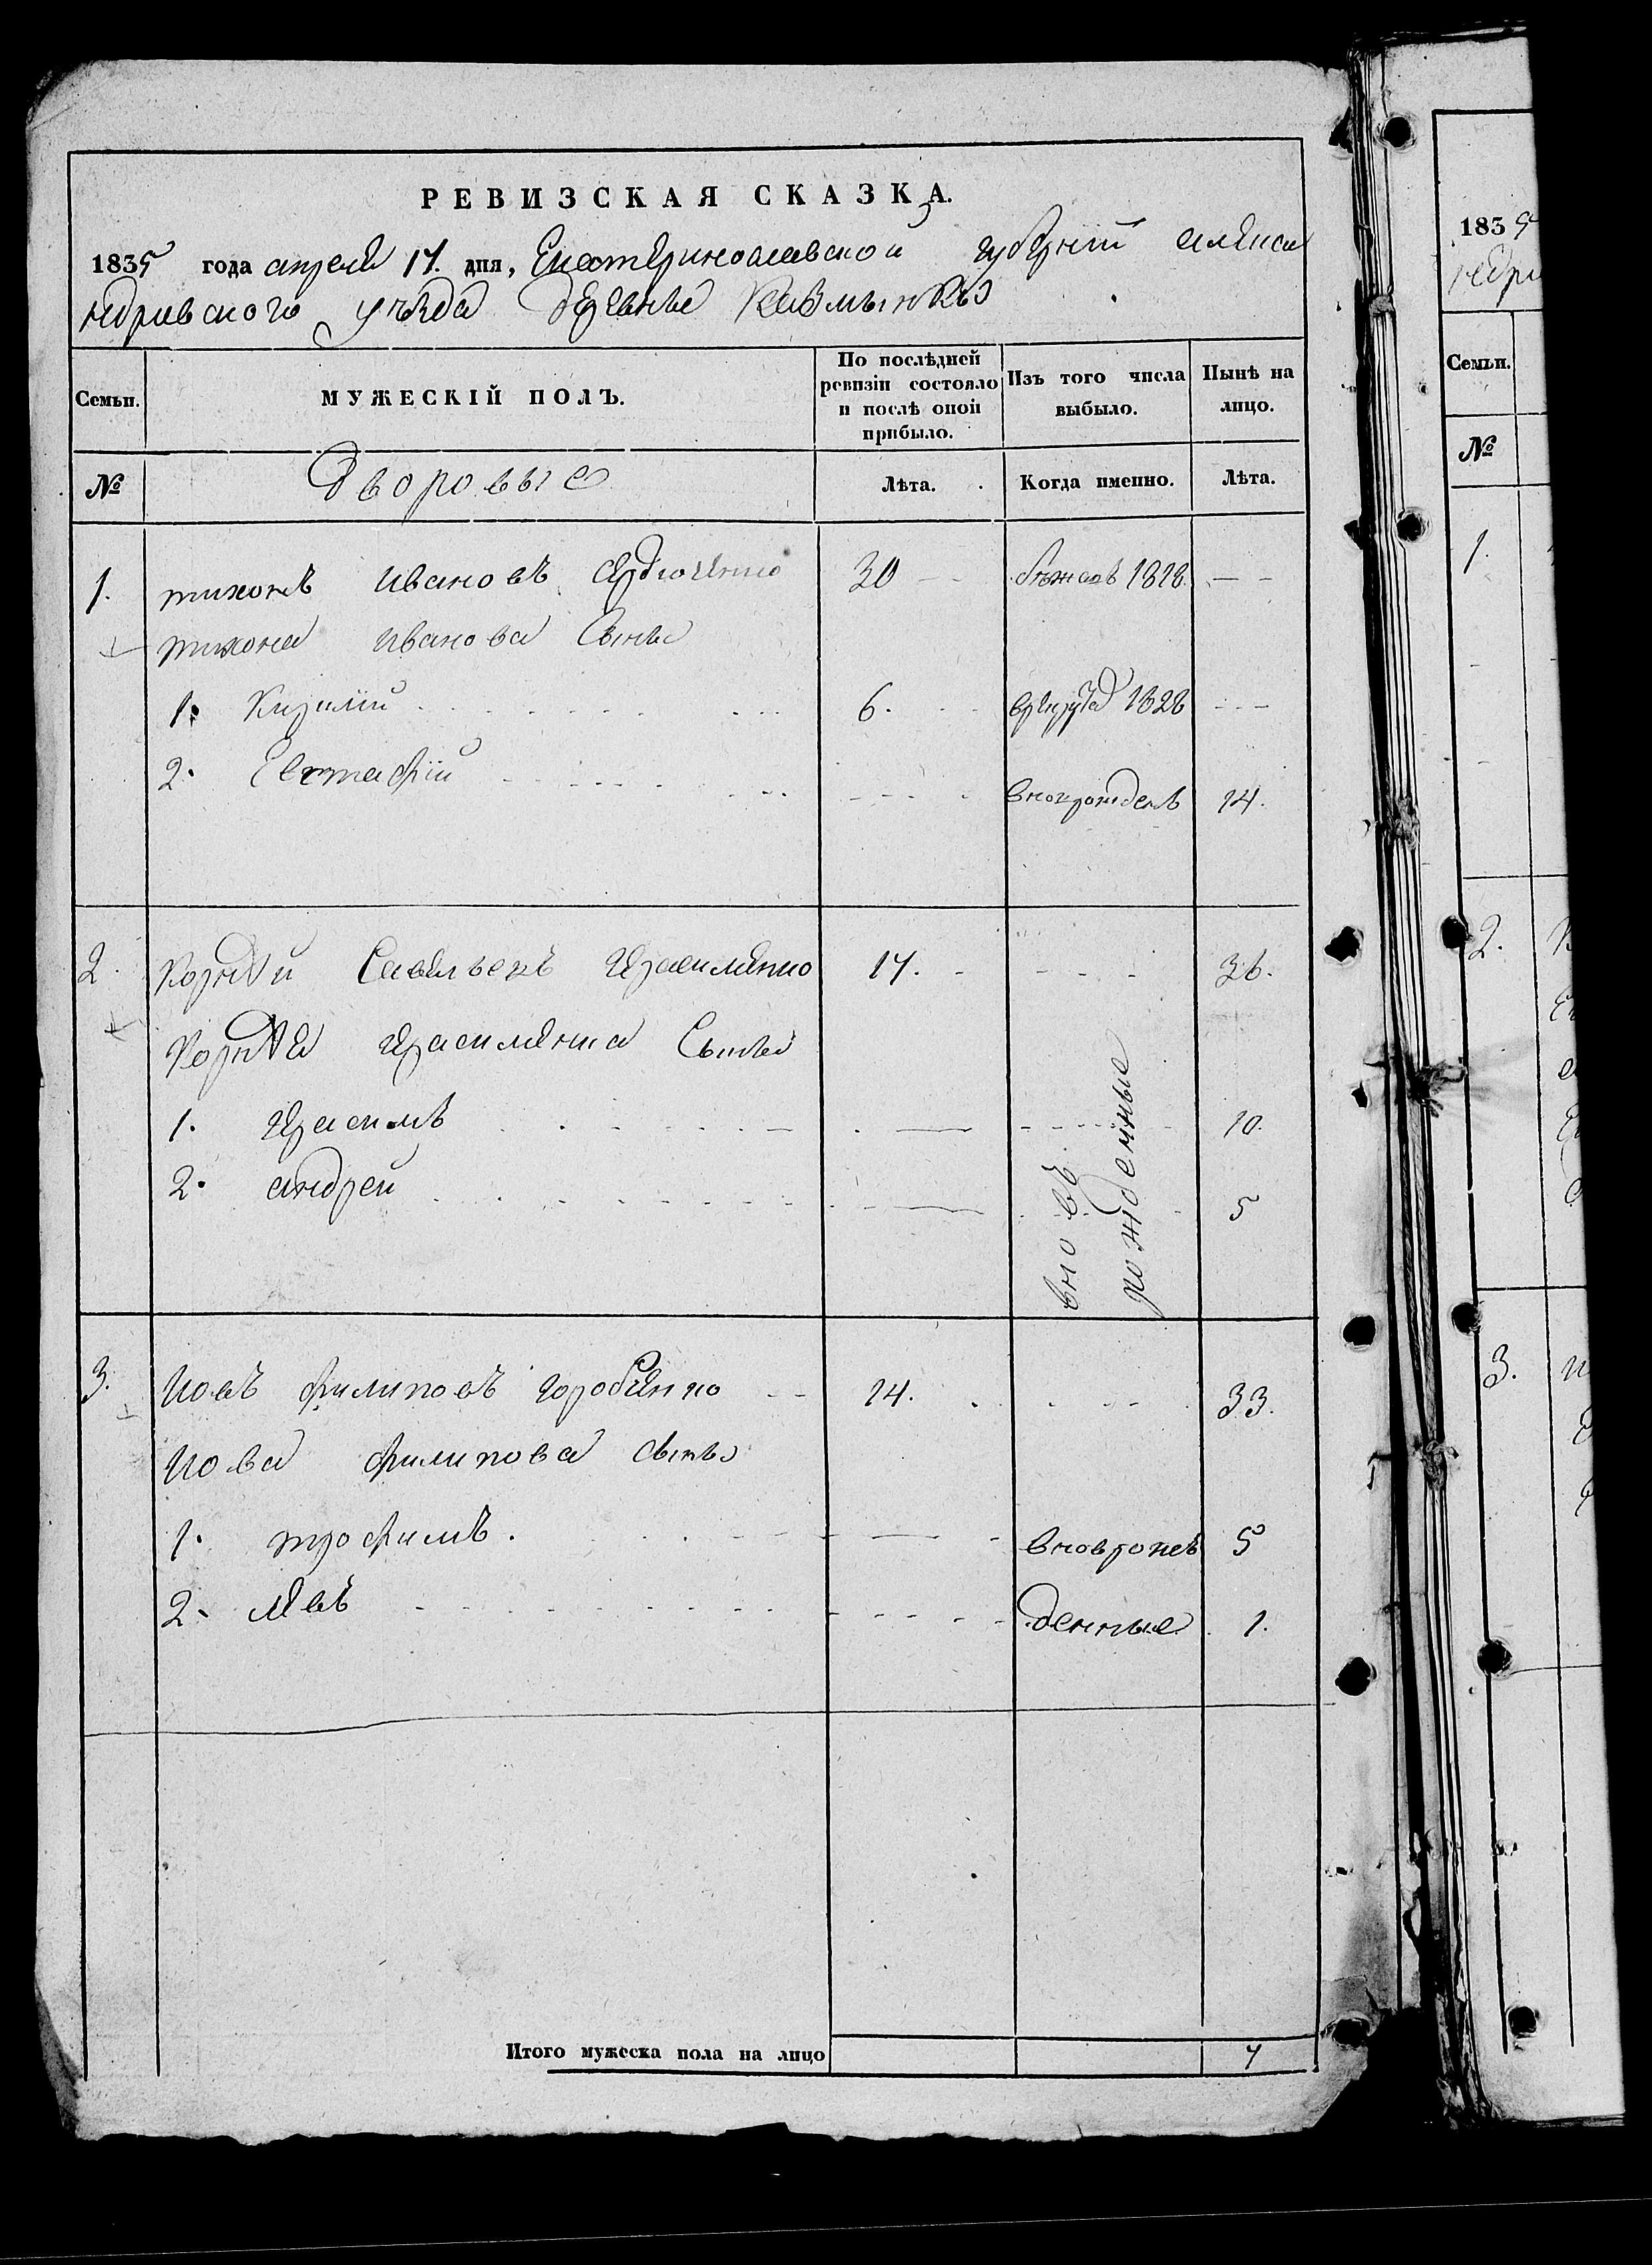 РЕВИЗСКАЯ СКАЗКА.
1835 года апреля 17. дня, Екатеринославской губернiи алекса
ндривского уѣзда деревны
Семьи. МУЖЕСКIЙ ПОЛЪ. По послѣдней ревизiи состояло и послѣ оной прибыло. Изъ того числа выбыло. Нынѣ на лицо.
№ Дворовые Лѣта. Когда именно. Лѣта.
1. тихонъ ивановъ 30 бѣжалъ 1818
тихона иванова Сыны
1. Кирилiй 6. 1828
2. Евстафiй вновърожденъ 14.
2. Корнѣй Савельевъ Герасименко 17. 36.
Корнѣя Герасименка Сыны
1. Герасимъ 10.
2. андрей 5
вновъ
рожденные
3. Иовъ филиповъ горобченко 14. 33.
Иова филипова сыны
1. трофимъ. вноврожъ 5
2. Левъ денные 1.
Итого мужеска пола на лицо 7
1835
ндри
Семьи.
№
1.
2.
3.